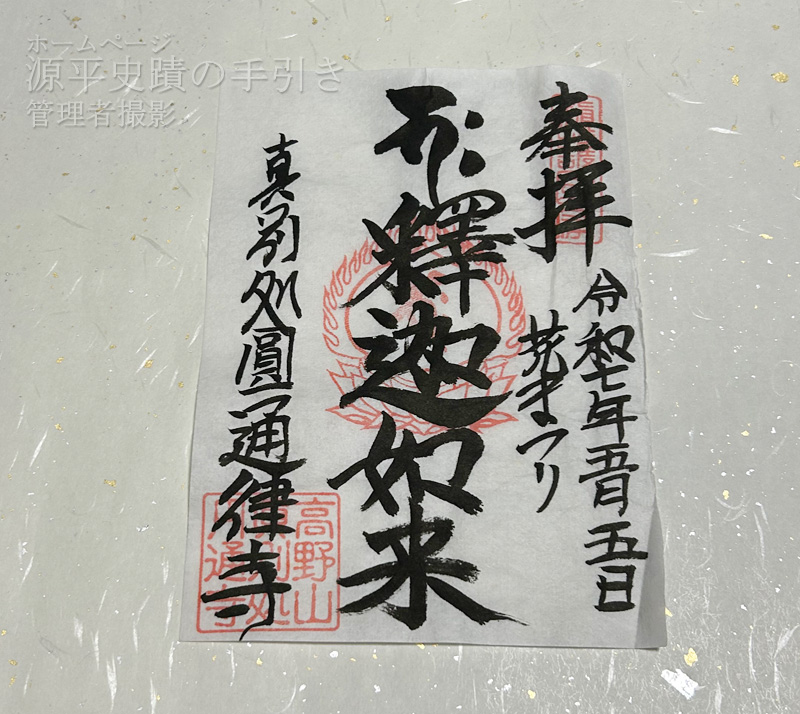 ホームページ
源平史蹟の手引き
管理者撮影
奉拝
令和七年五月五日
花まつり
釋迦如来
真別処圓通律寺
高野山